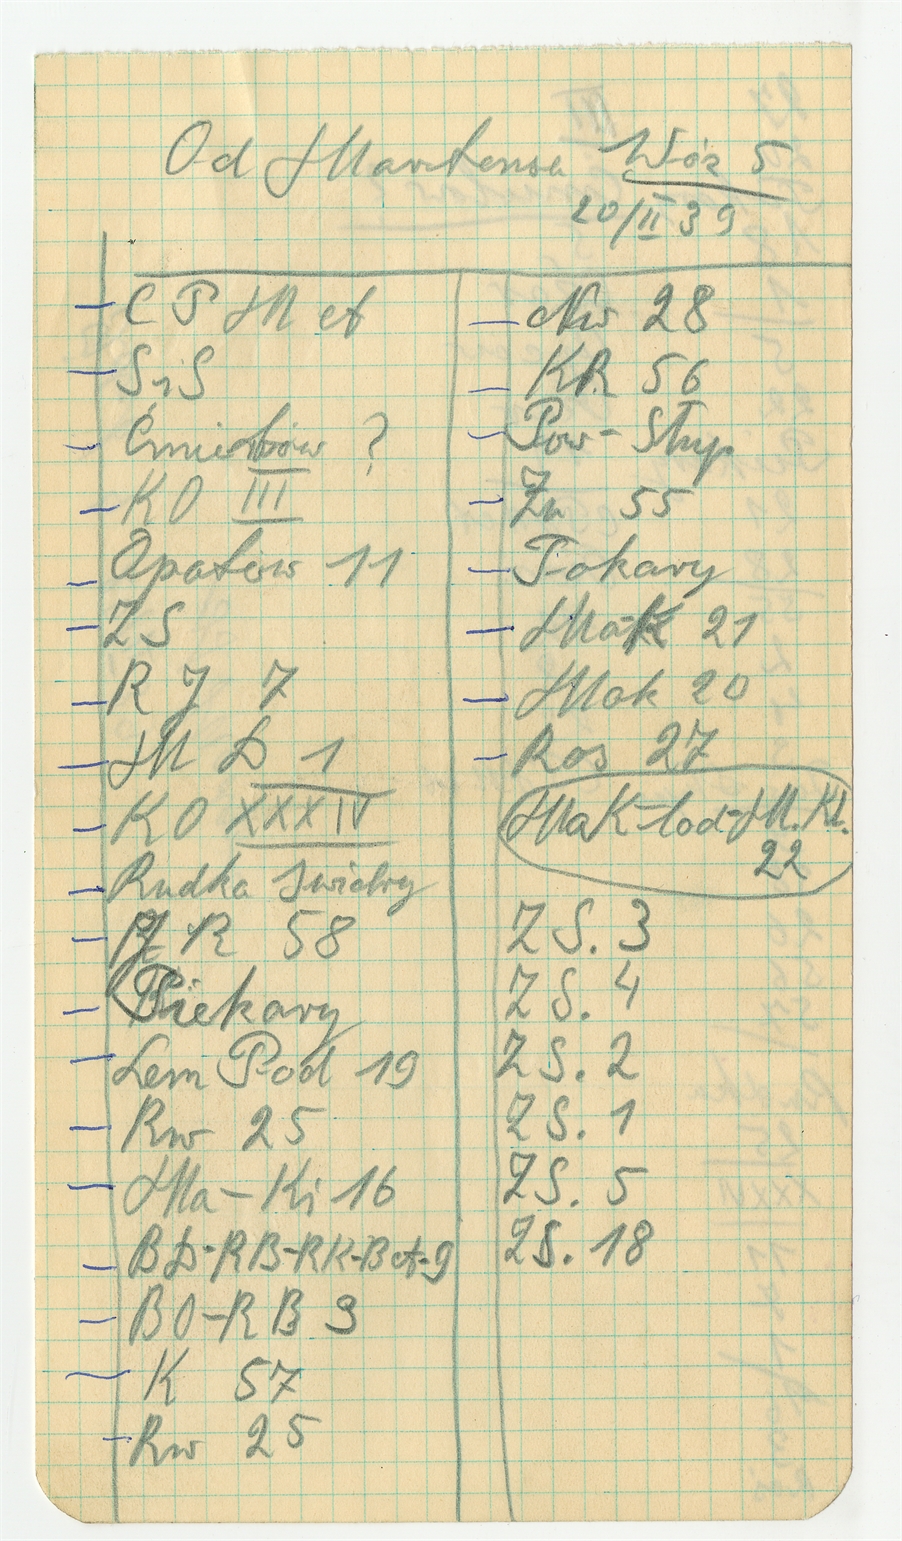 Od Martensa Wóz 5
20/II 39
C P M A
SnS
Ćmielów ?
KO III
Opatów 11
ZS
R J 7
M D 1
KO XXXIV
Rudka
R 58
Piekary
Lem Pod 19
Rw 25
Ma-Ki 16
BD-RB-RK-BA-9
BO-RB 9
K 57
Rw 25
Nw 28
KR 56
Pow-Słup
Zn 55
Tokary
Mak 21
Mok 20
Ros 27
MaK-lod-M.Kl.
22
ZS. 3
ZS. 4
ZS. 2
ZS. 1
ZS. 5
ZS. 18